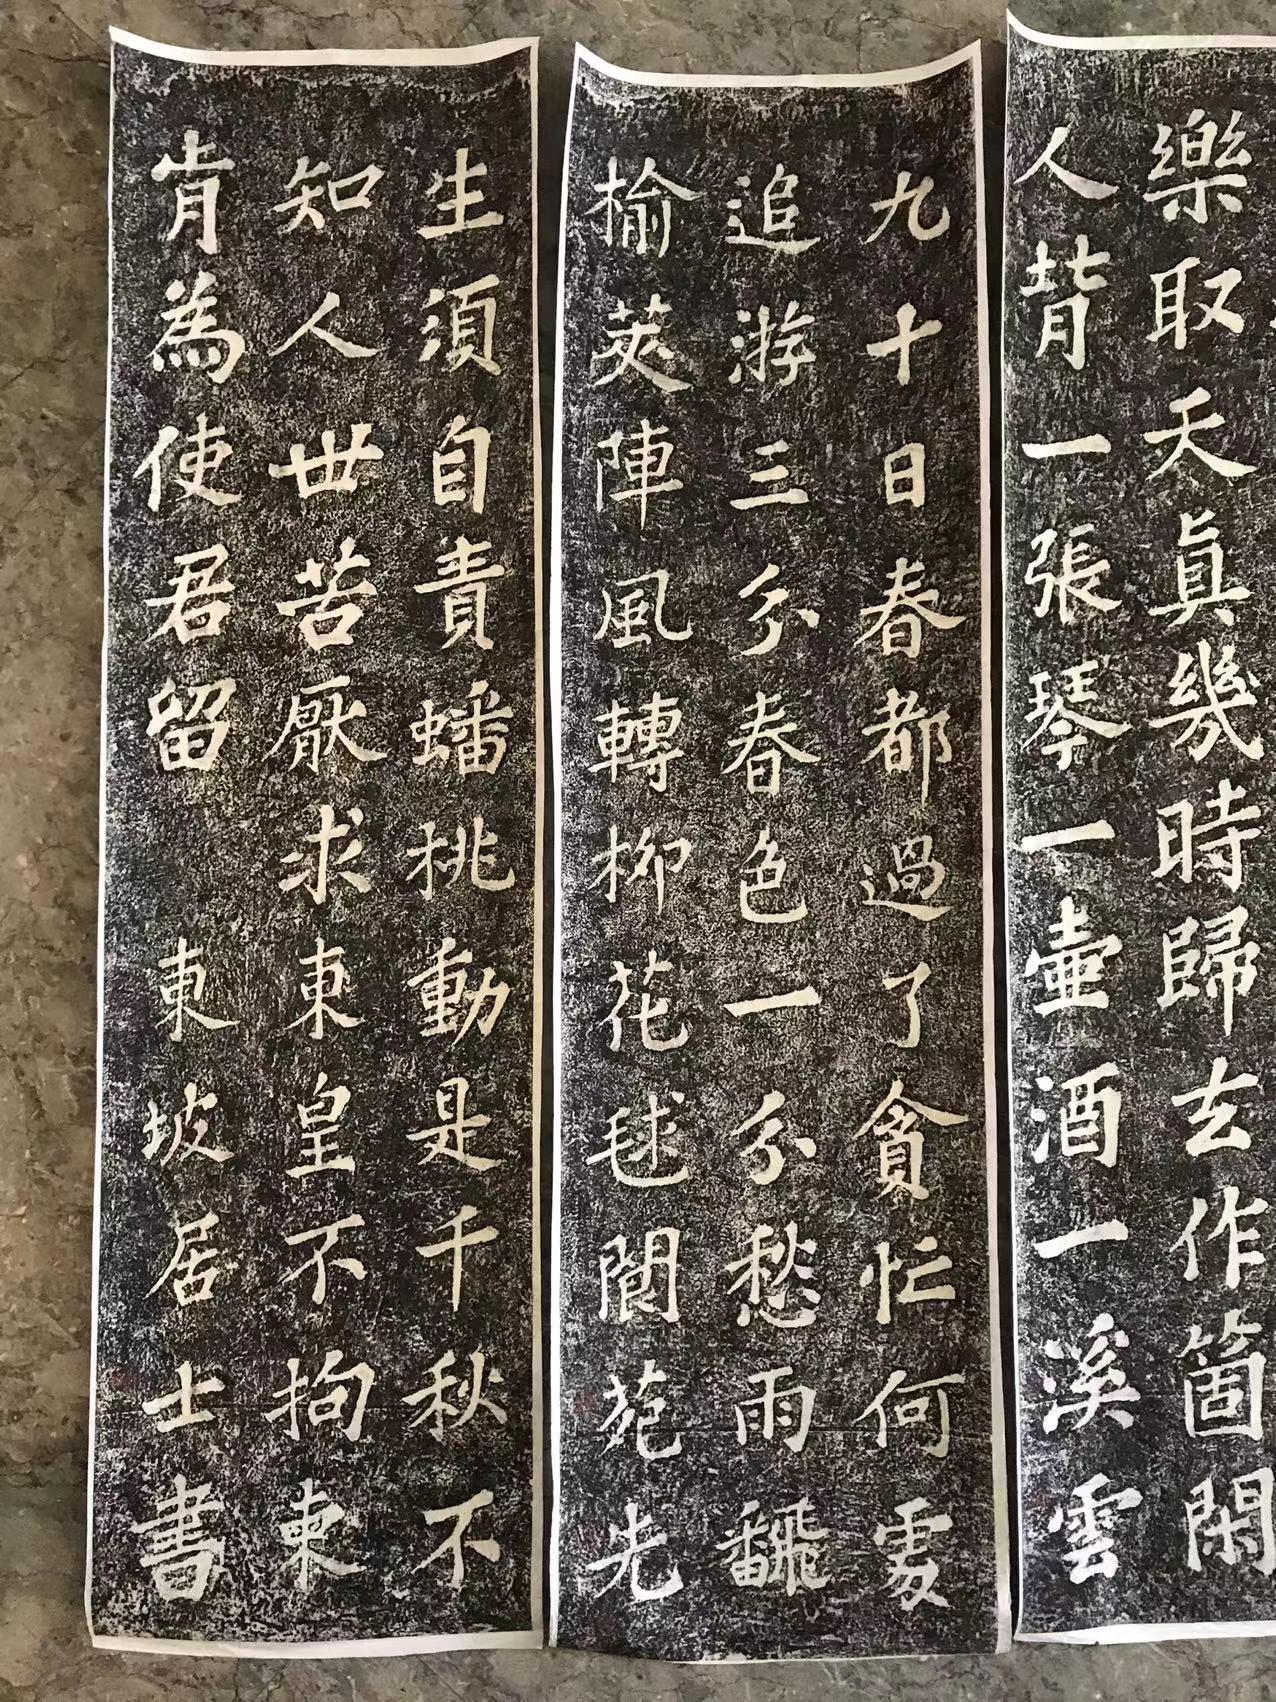 樂取天真幾時歸去作箇閑
人背一張琴一壺酒一溪雲
九十日春都過了貪忙何處
追游三分春色一分愁雨飜
榆莢陣風轉柳花毬閬苑先
生須自責蟠桃動是千秋不
知人世苦厭求東皇不拘束
肯為使君留 東坡居士書